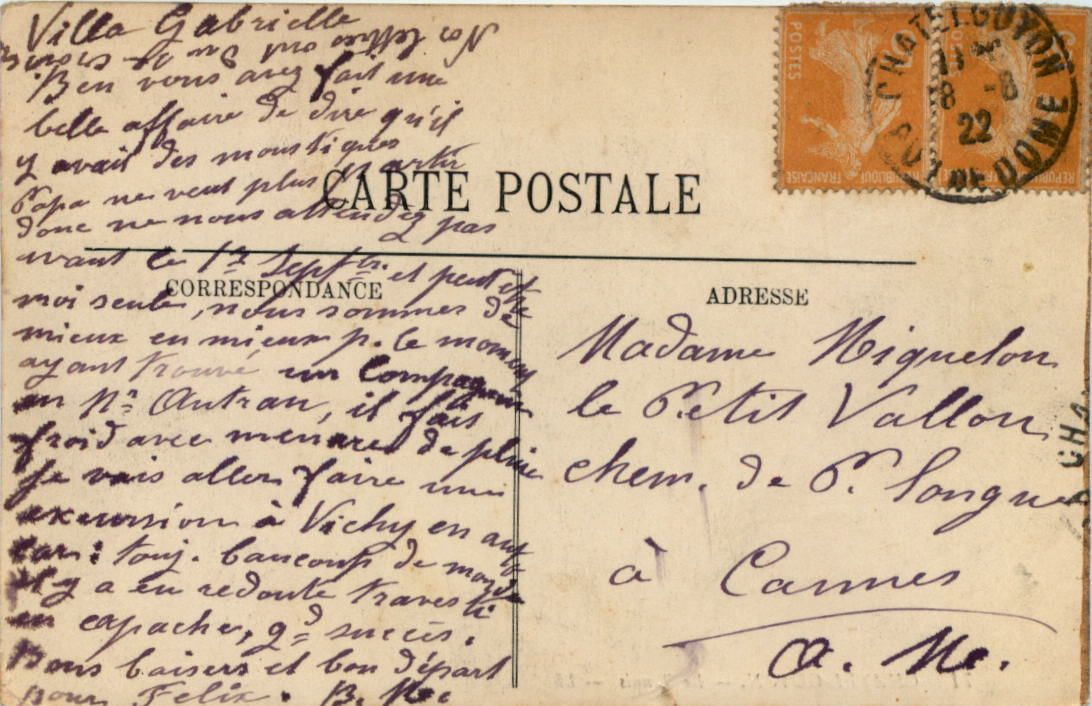 Villa Gabrielle
Ben vous avez fait une
belle affaire de dire qu'il
y avait des moustiques
Papa ne veut plus partir
donc ne nous attendez pas
avant le 1er Septbre et peut être
moi seule, nous sommes de
mieux en mieux p. le moment
ayant trouvé un compagnon
en Mr Autran, il fait
froid avec menaces de pluie
Je vais aller faire une
excursion à Vichy en auto
car: touj. baucoup de monde
il y a eu redoute travesti
en apaches, gd succès.
Bons baisers et bon départ
pour Felix. B. M.
CARTE POSTALE
CORRESPONDANCE
ADRESSE
Madame Miquelon
le Petit Vallon
chem. de P. Longue
à Cannes
A. M.
POSTES
REPUBLIQUE FRANÇAISE
REPUBLIQUE
CHATELGUYON
8 -8
22
PUY DE DOME
CHA